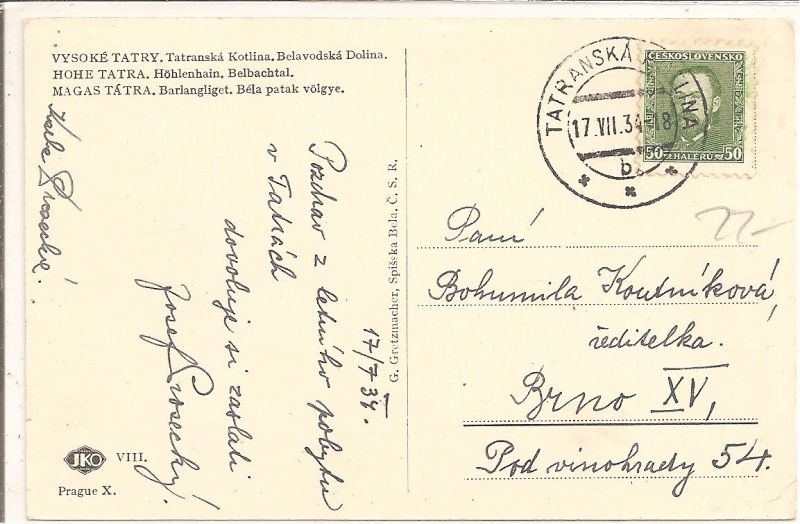 VYSOKÉ TATRY. Tatranská Kotlina. Belavodská Dolina.
HOHE TATRA. Höhlenhain, Belbachtal.
MAGAS TÁTRA. Barlangliget. Béla patak völgye.
17/7 34.
Pozdrav z letního pobytu
v Tatrách
dovoluje si zaslati
Josef Prosecký!
Prosecká.
JKO VIII.
Prague X.
G. Gretzmacher, Spišska Bela, Č. S. R.
TATRANSKÁ LINA
17.VII.34-18
b
ČESKOSLOVENSKO
50 HALÉŘŮ 50
Paní
Bohumila Koutníková,
ředitelka.
Brno XV,
Pod vinohrady 54.